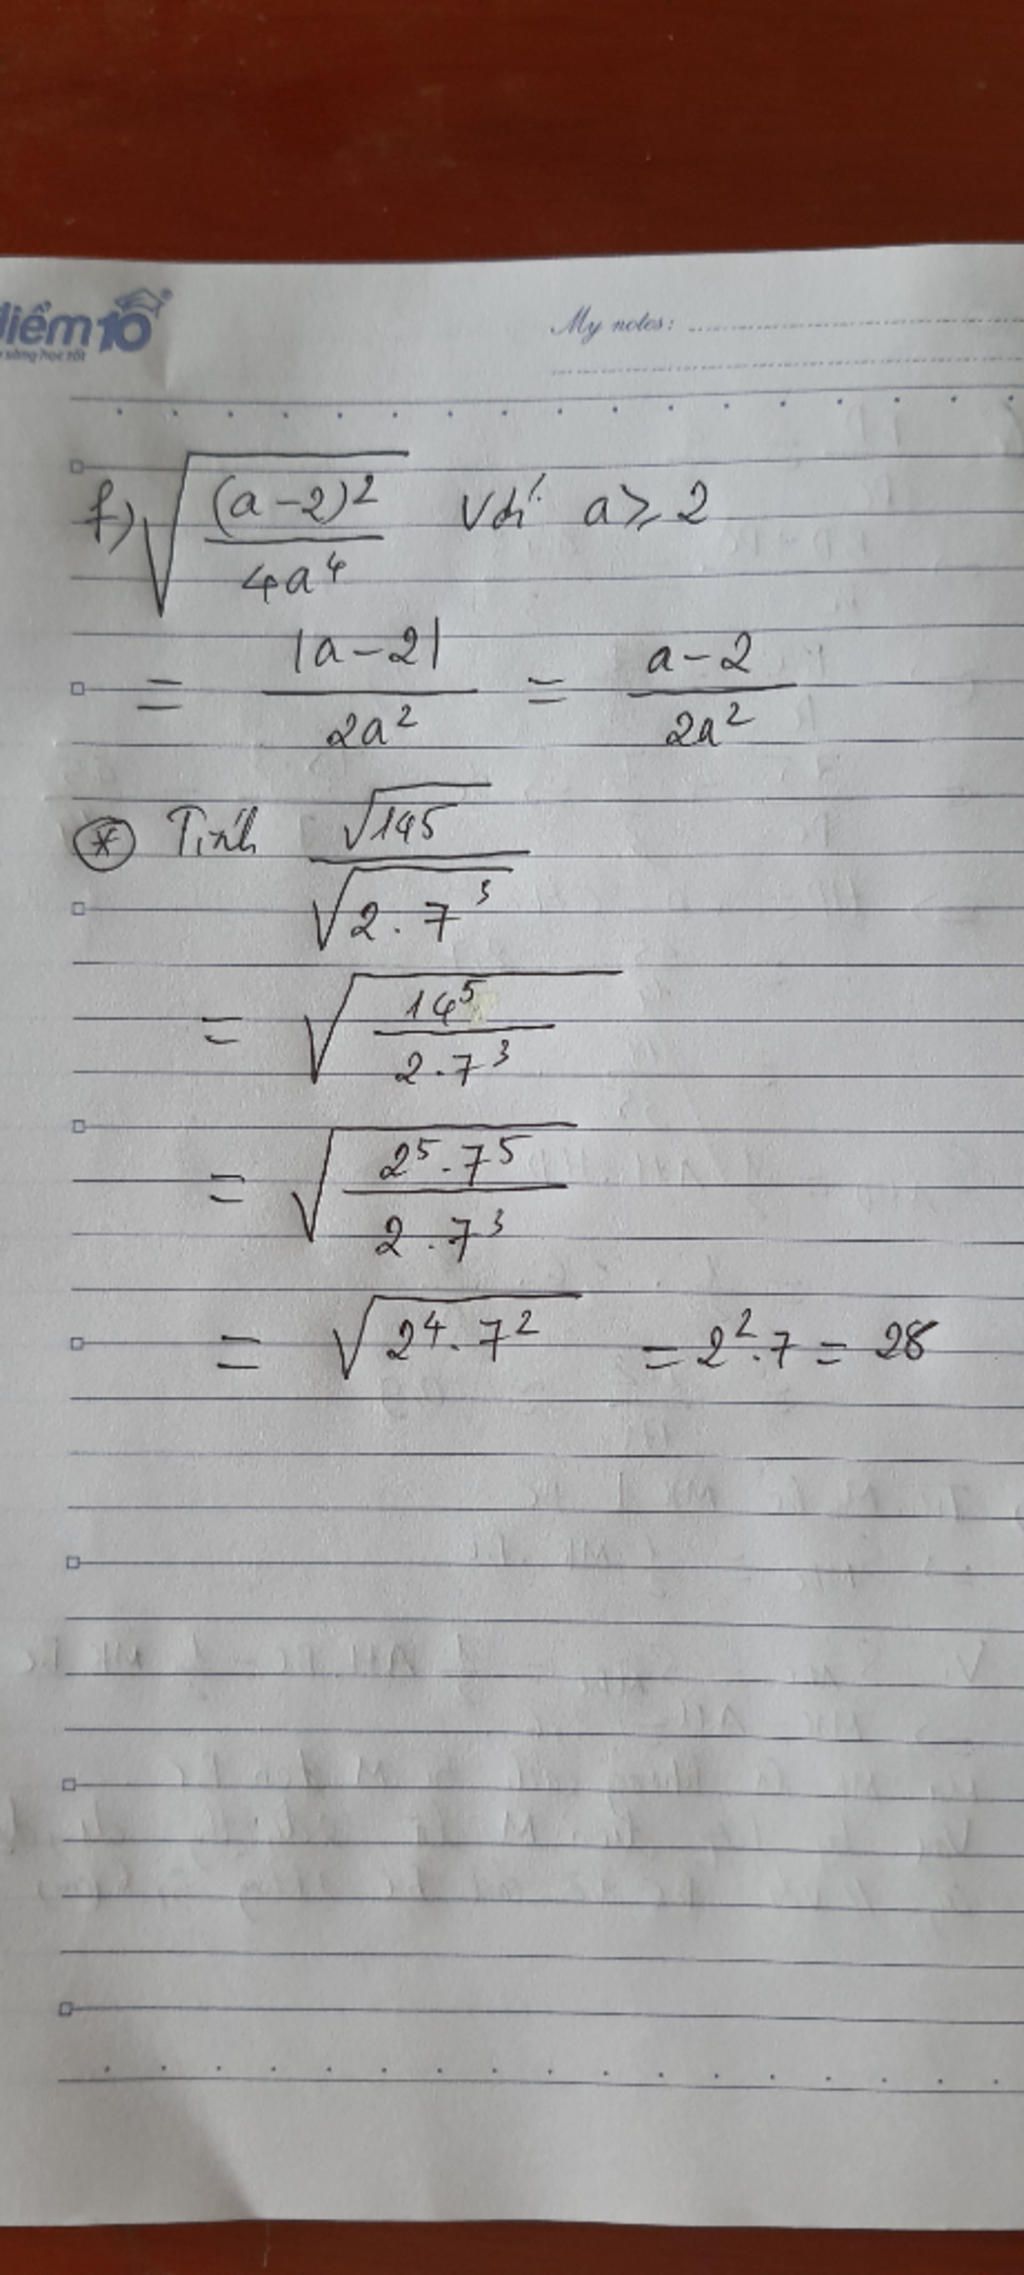 điểm 10
sống học tốt
My notes:
f) √((a-2)²/(4a⁴)) Với a ≥ 2
= |a-2|/(2a²) = (a-2)/(2a²)
* Tính √145/√(2.7³)
= √(14⁵/(2.7³))
= √(2⁵.7⁵/(2.7³))
= √(2⁴.7²) = 2².7 = 28